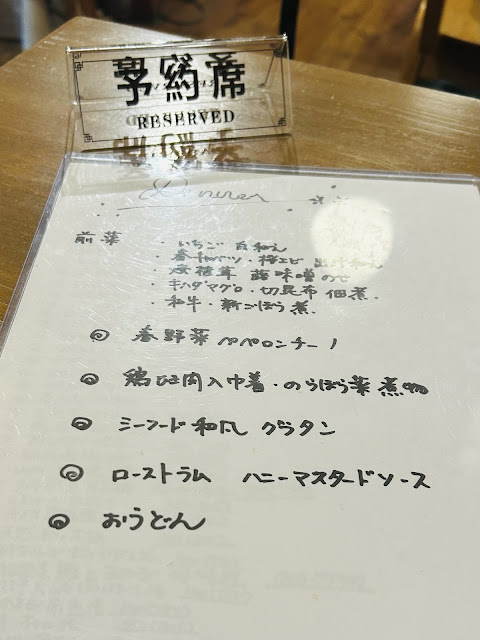 予約席
RESERVED
Dinner
前菜 ・いちご 白和え
・春キャベツ・桜エビ 出汁和え
・焼椎茸 蕗味噌のせ
・キハダマグロ・切昆布 佃煮
・和牛・新ごぼう煮
春野菜ペペロンチーノ
鶏ひき肉入巾着・のらぼう菜煮物
シーフード和風グラタン
ローストラム ハニーマスタードソース
おうどん